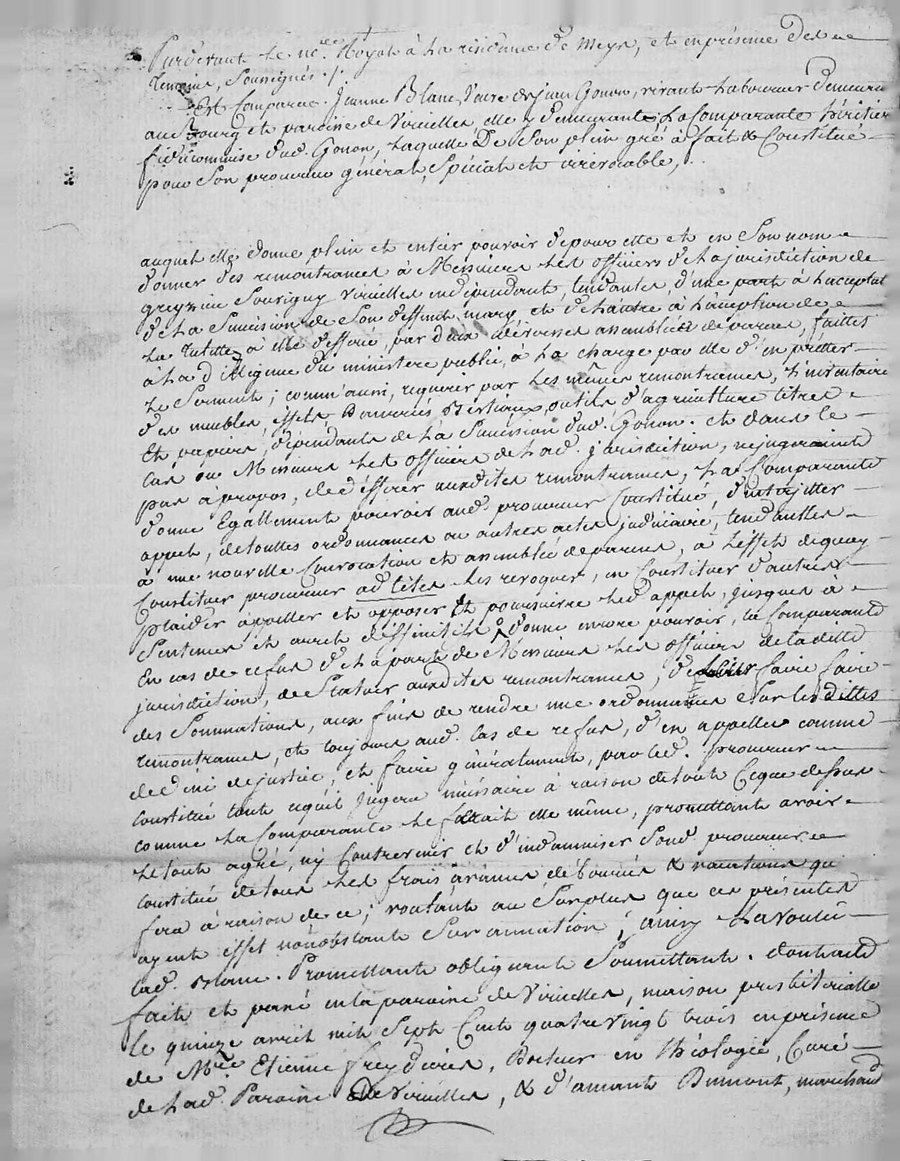 Pardevant le nre. Royal à la résidence de Meys, et en présence des
témoins, soussignés ./.
Est Comparue Jeanne Blanc, Veuve de Jean Gonon, vivant Laboureur demeurant
au Bourg et paroisse de Viricelles, elle y demeurante, La Comparante héritière
fiduciaire dud. Gonon, Laquelle De Son plein gré à fait & Constitué
pour Son procureur général, Spécial et irrévocable,
auquel elle donne plein et entier pouvoir de pour elle et en Son nom
donner des remontrances à Messieurs Les officiers de La jurisdiction de
Souvigny Viricelles indépendant, tendantes, d'une part à L'acceptat
de La Succession de Son deffunt mary, et de L'autre à L'acception de
La Tutelle à elle defferée, par deux diverses assemblées de parens, faittes
à La diligence du ministere public, à La charge par elle d'en prêtter
Le Serment ; comm'aussi, requerir par Les mêmes remontrances, L'inventaire
des meubles, effets, Danrées, Bestiaux, outils d'agriculture titres
Et papiers, dépendants de La Succession dud. Gonon. et dans le
Cas ou Messieurs Les officiers de Lad. jurisdiction, ne jugeroient
pas à propos, de déférer auxdites remontrances, La Comparante
donne Egallement pouvoir aud. procureur Constitué, d'interjetter
appel, de touttes ordonnances ou autres actes judiciaire, tendantes
à une nouvelle Convocation et assemblée de parens, à L'effet de quoy
Constituer procureur ad lites les revoquer, en Constituer d'autres
plaider appeller et opposer et poursuivre Led. appel, jusques à
Sentence et arrêt deffinitifs, donne encore pouvoir, la Comparante
En cas de refus de La part de Messieurs Les officiers de ladite
jurisdiction, de Statuer auxdites remontrances, de faire faire
des Sommations, aux fins de rendre une ordonnance Sur les dittes
remontrances, et toujours aud. Cas de refus, d'en appeller comme
de déni de justice, et faire généralement, par led. procureur
constitué tout ce qu'il jugera nécéssaire à raison de tout Ceque dessus
comme La Comparante Le feroit elle même, promettant avoir
Le tout agré, ny Contrevenir et d'indamniser Sond. procureur
Constitué de tous Les frais avances, déboursés & vacations qu
fera à raison de ce ; voulant au Surplus que ces présentes
ayent effet nonobstant Surannation ; ainsy L'a voulu
Lad. Blanc. Promettant obligeant Soumettant. dont acte
fait et passé en la paroisse de Viricelles, maison presbitérialle
Le quinze avril mil Sept Cent quatre vingt trois en présence
de Mre. Etienne Freydière, Docteur en théologie, Curé
de Lad. Paroisse De Viricelles, & d'amant Dumont, marchand